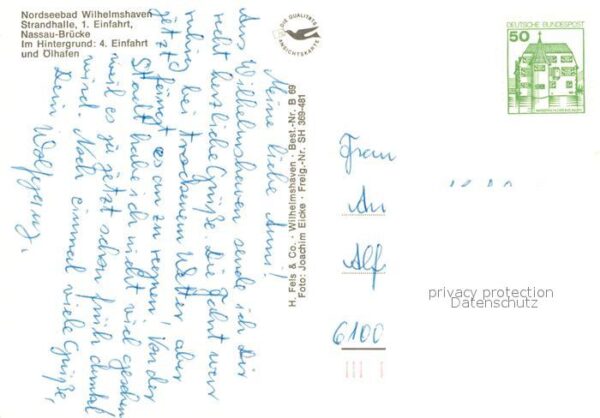 Nordseebad Wilhelmshaven
Strandhalle, 1. Einfahrt,
Nassau-Brücke
Im Hintergrund: 4. Einfahrt
und Ölhafen
Meine liebe Anni!
Aus Wilhelmshaven sende ich Dir
recht herzliche Grüße. Die Fahrt war
ruhig bei trockenem Wetter, aber
jetzt fängt es an zu regnen. Von der
Stadt habe ich nicht viel gesehen
weil es ja jetzt schon früh dunkel
wird. Noch einmal viele Grüße,
Dein Wolfgang.
DIE QUALITÄTS
ANSICHTSKARTE
H. Fels & Co. · Wilhelmshaven · Best.-Nr. B 69
Foto: Joachim Eicke · Freig.-Nr. SH 369-481
DEUTSCHE BUNDESPOST
50
Frau
An
Alf
6100
privacy protection
Datenschutz